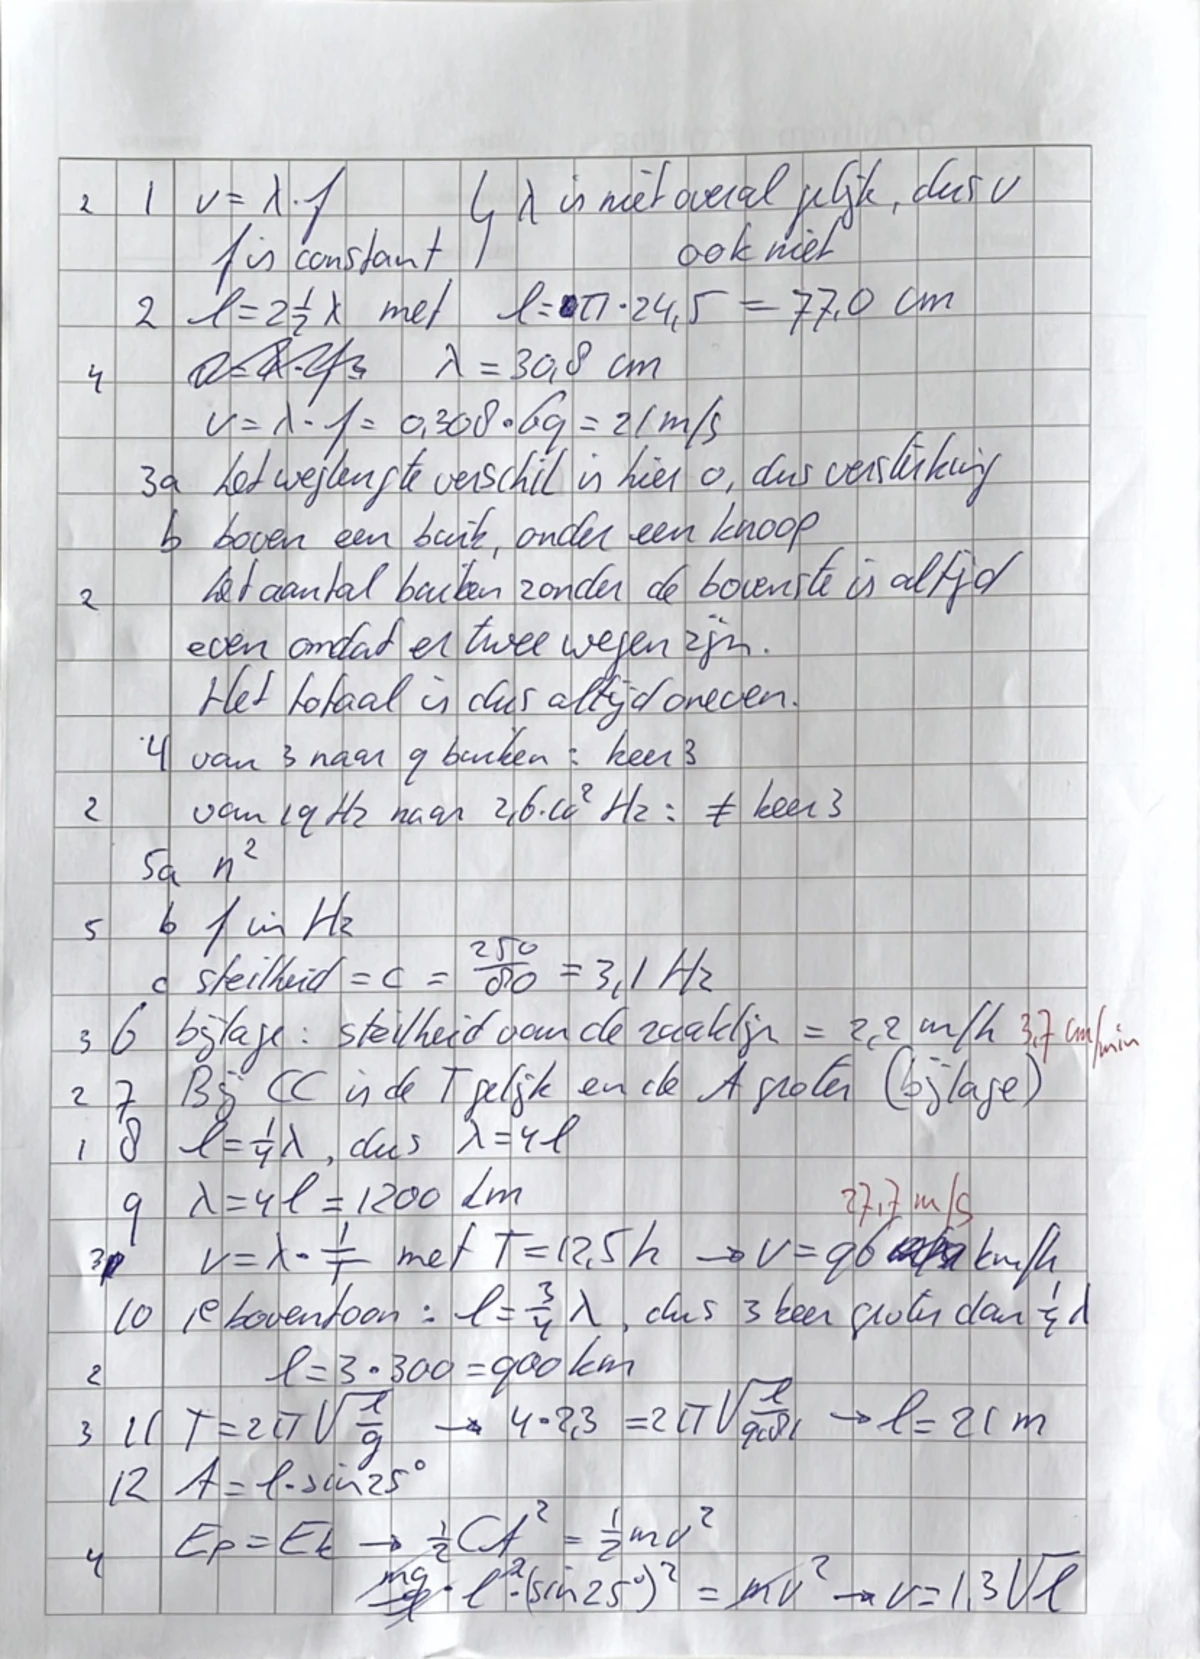 2 1 v = λ · f ↳ λ is niet overal gelijk, dus v
f is constant ook niet
2 l = 2½ λ met l = π · 24,5 = 77,0 cm
4 λ = 30,8 cm
v = λ · f = 0,308 · 69 = 21 m/s
3a het weglengte verschil is hier 0, dus versterking
b boven een buik, onder een knoop
2 het aantal buiken zonder de bovenste is altijd
even omdat er twee wegen zijn.
Het totaal is dus altijd oneven.
4 van 3 naar 9 buiken : keer 3
2 van 19 Hz naar 2,6·10² Hz : ≠ keer 3
5a n²
5 b f in Hz
c steilheid = c = 250/80 = 3,1 Hz
3 6 bijlage : steilheid van de raaklijn = 2,2 m/h 3,7 cm/min
2 7 Bij CC is de T gelijk en de A groter (bijlage)
1 8 l = ¼ λ, dus λ = 4l
9 λ = 4l = 1200 km 27,7 m/s
3 v = λ · 1/T met T = 12,5 h → v = 96 km/h
10 1e boventoon : l = ¾ λ, dus 3 keer groter dan ¼ λ
2 l = 3 · 300 = 900 km
3 11 T = 2π√(l/g) → 4 · 2,3 = 2π√(l/9,81) → l = 21 m
12 A = l · sin 25°
4 Ep = Ek → ½CA² = ½mv²
mg/l · l² · (sin 25°)² = mv² → v = 1,3√l